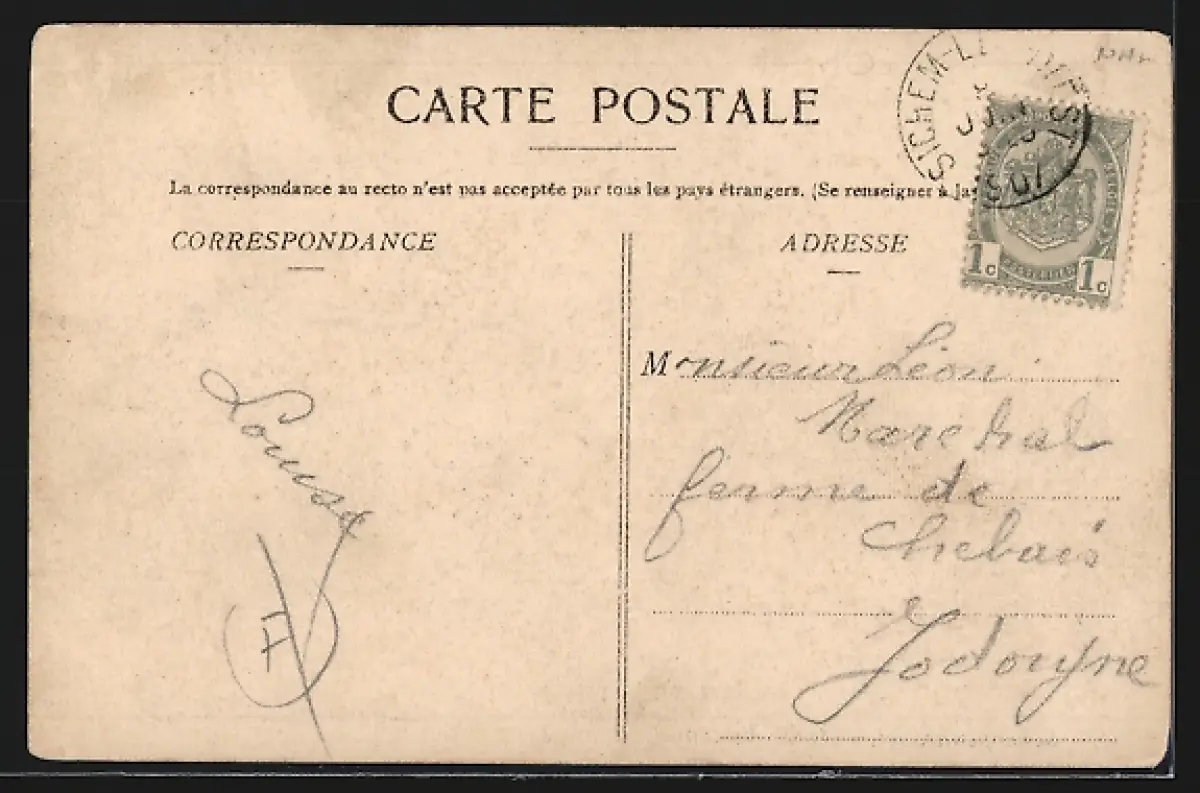 CARTE POSTALE
La correspondance au recto n'est pas acceptée par tous les pays étrangers. (Se renseigner à la
CORRESPONDANCE
ADRESSE
SICHEM-L
1c 1c
Monsieur Léon
Marechal
ferme de
Chebais
Jodoigne
Louisa
H